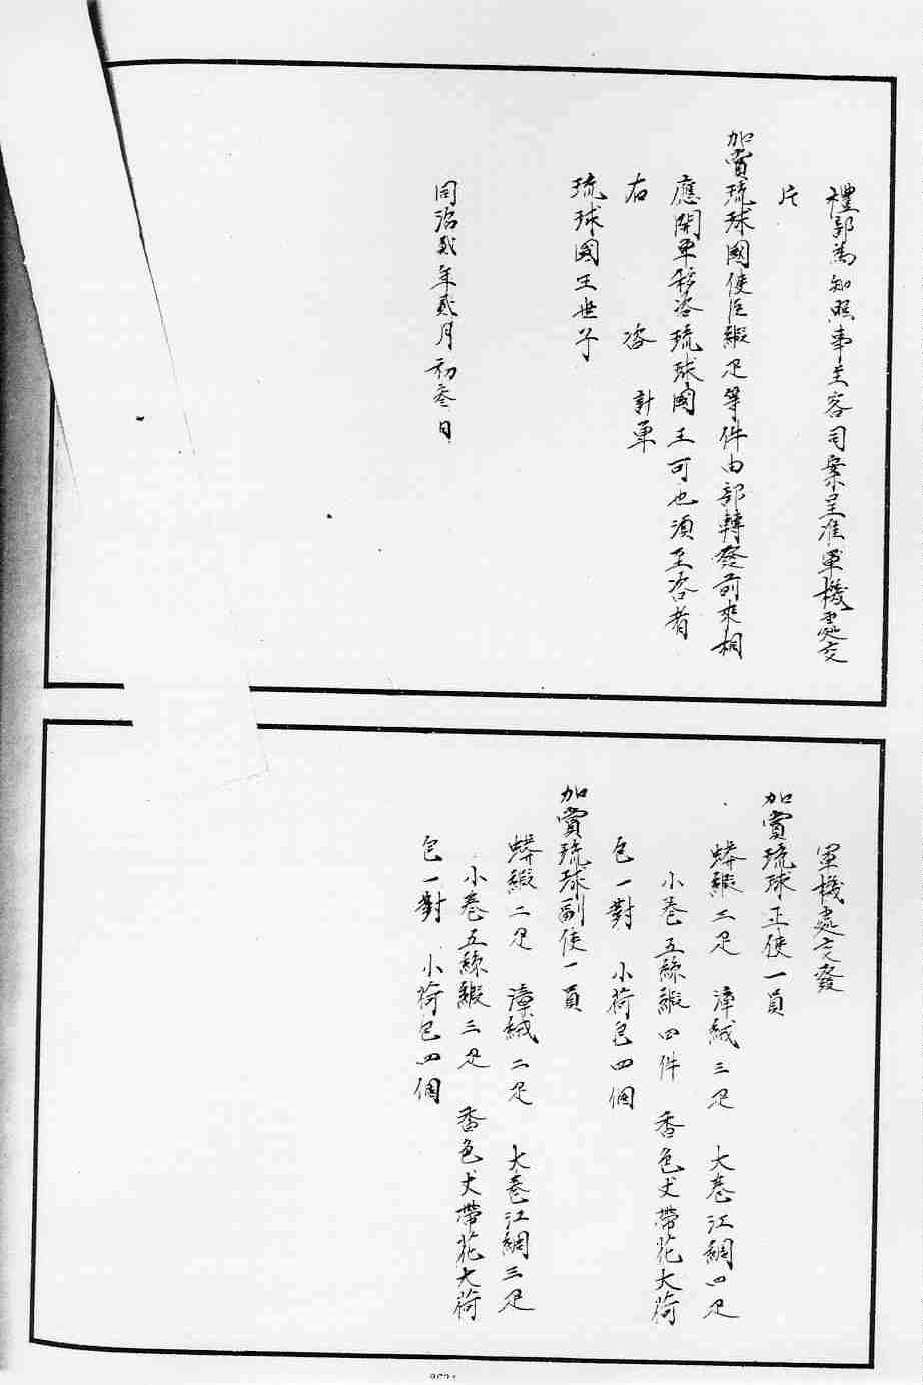 禮部為知照事主客司案呈准軍機處交
片
加賞琉球國使臣緞疋等件由部轉發前來相
應開單移咨琉球國王可也須至咨者
右　咨　計單
琉球國王世子
同治貳年貳月初叁日
軍機處交發
加賞琉球正使一員
蟒緞二疋　漳絨三疋　大卷江綢四疋
小卷五絲緞四件　香色丈帶花大荷
包一對　小荷包四個
加賞琉球副使一員
蟒緞二疋　漳絨二疋　大卷江綢三疋
小卷五絲緞三疋　香色丈帶花大荷
包一對　小荷包四個